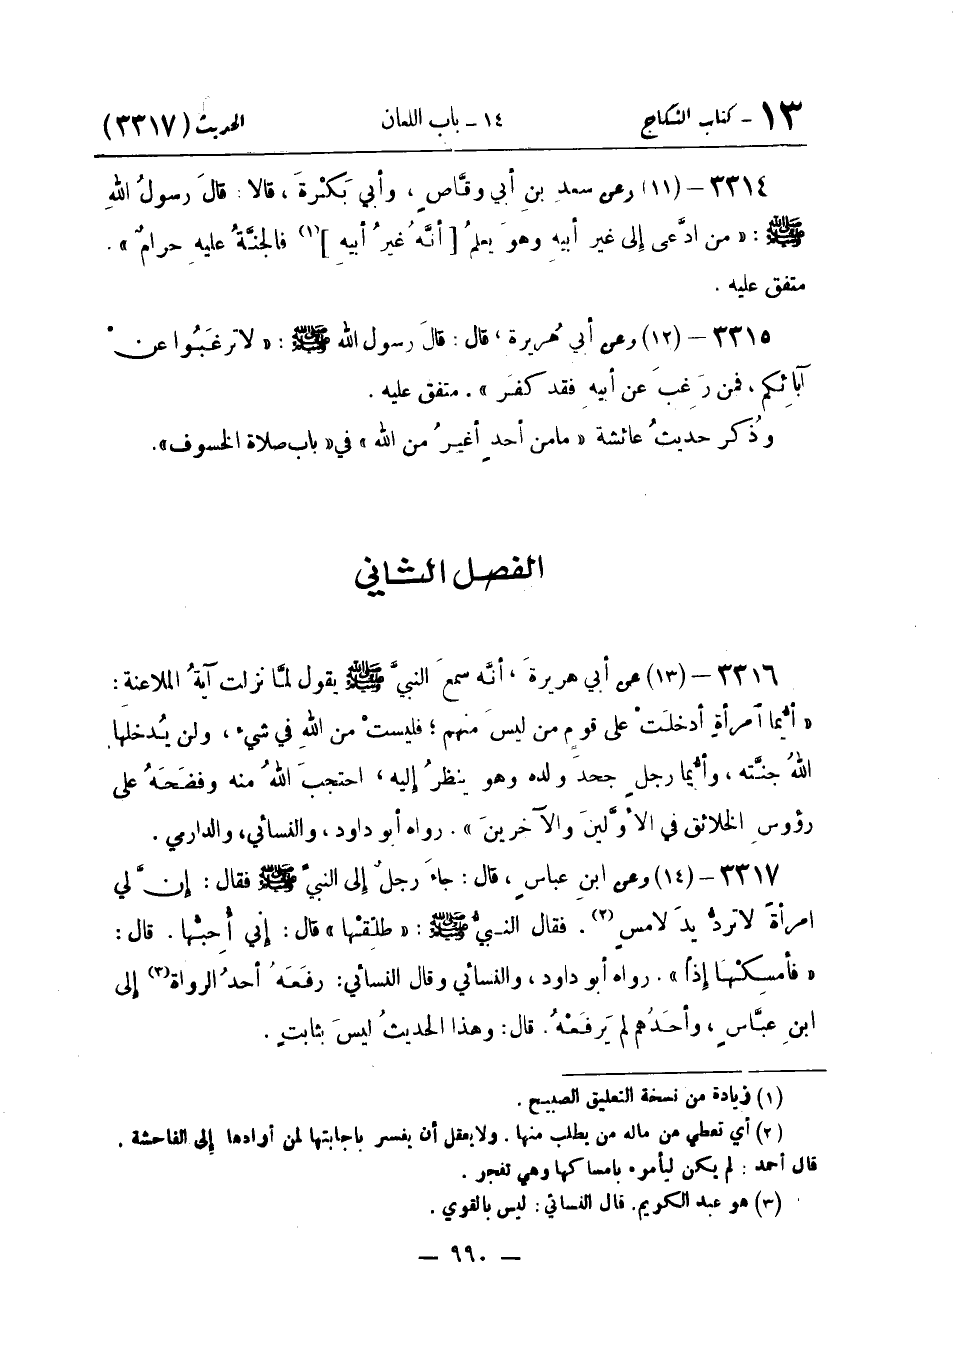 ١٣ - كتاب النكاح ١٤ - باب اللعان الحديث (٣٣١٧)
٣٣١٤ - (١١) وعن سعدِ بنِ أبي وقَّاصٍ ، وأبي بَكْرةَ ، قالا : قالَ رسولُ اللهِ
ﷺ : « من ادَّعى إلى غيرِ أبيهِ وهوَ يعلمُ [ أنَّهُ غيرُ أبيهِ ](١) فالجنَّةُ عليهِ حرامٌ » .
متفق عليه .
٣٣١٥ - (١٢) وعن أبي هُريرة ، قال : قالَ رسول الله ﷺ : « لا ترغَبُوا عنْ
آبائِكم ، فمن رَغِبَ عن أبيهِ فقد كفَرَ » . متفق عليه .
وذُكر حديثُ عائشة « ما من أحدٍ أغيرُ من الله » في « باب صلاة الخسوف ».
الفصل الثاني
٣٣١٦ - (١٣) عن أبي هريرةَ ، أنَّه سمعَ النبيَّ ﷺ يقول لمَّا نزلت آيةُ الملاعنةِ :
« أيُّما امرأةٍ أدخلَتْ على قومٍ من ليسَ منهم ؛ فليستْ من اللهِ في شيء ، ولن يُدخلها
اللهُ جنَّته ، وأيُّما رجلٍ جحدَ ولده وهو ينظرُ إليه ، احتجبَ اللهُ منه وفضَحَهُ على
رؤوسِ الخلائق في الأوَّلينَ والآخرينَ » . رواه أبو داود ، والنسائي، والدارمي .
٣٣١٧ - (١٤) وعن ابنِ عباسٍ ، قال : جاءَ رجلٌ إلى النبيِّ ﷺ فقال : إنَّ لي
امرأةً لا تردُّ يدَ لامسٍ (٢) . فقال النبيُّ ﷺ : « طلِّقْها » قال : إني أُحبُّها . قال :
« فأمسِكْها إذاً » . رواه أبو داود ، والنسائي وقال النسائي: رفَعَهُ أحدُ الرواة(٣) إلى
ابنِ عبَّاسٍ ، وأحَدُهم لم يَرفَعْهُ. قال: وهذا الحديثُ ليسَ بثابتٍ .
(١) زيادة من نسخة التعليق الصبيح .
(٢) أي تعطي من ماله من يطلب منها . ولا يعقل أن يفسر بإجابتها لمن أرادها إلى الفاحشة .
قال أحمد : لم يكن ليأمره بامساكها وهي تفجر .
(٣) هو عبد الكريم. قال النسائي : ليس بالقوي .
— ٩٩٠ —